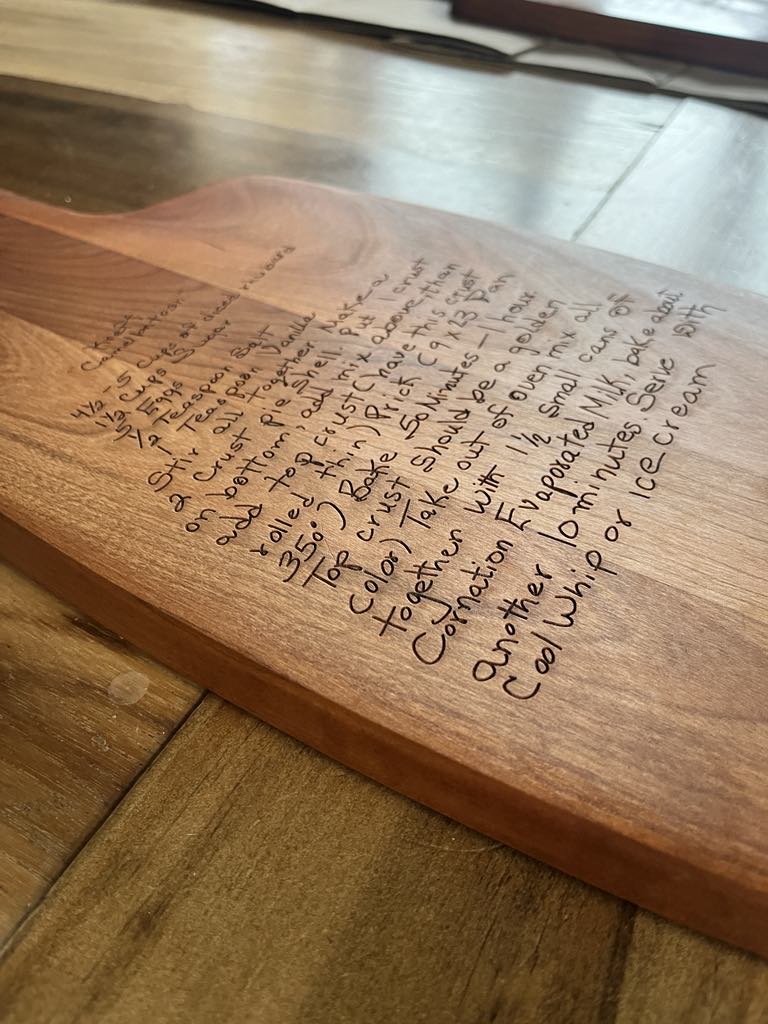 4½ - 5 cups of diced rhubarb
1½ Cups Sugar
5 Eggs
½ Teaspoon Salt
1 Teaspoon Vanilla
Stir all together Make a
2 crust pie shell. Put 1 crust
on bottom, add mix above, than
add top crust (have this crust
rolled thin) Prick (9 x 23 Pan
350°) Bake 50 Minutes - 1 hour
Top crust should be a golden
color) Take out of oven mix all
together with 1½ small cans of
Cornation Evaporated Milk, bake about
another 10 minutes Serve with
Cool Whip or ice cream